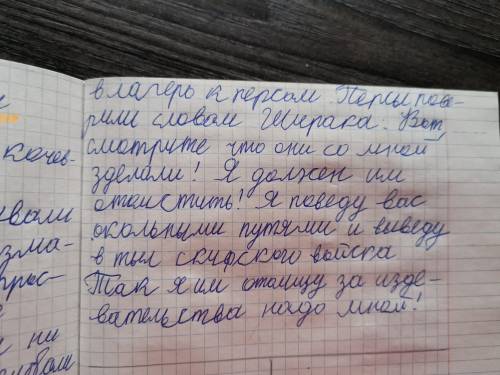 в лагерь к персам. Персы пове-
рили словам Ширака. Вот,
смотрите что они со мной
зделали! Я должен им
отомстить! Я поведу вас
окольными путями и выведу
в тыл скифского войска
Так я им отомщу за изде-
вательства надо мной!
кочев-
ивали
зма-
прос-
и ни